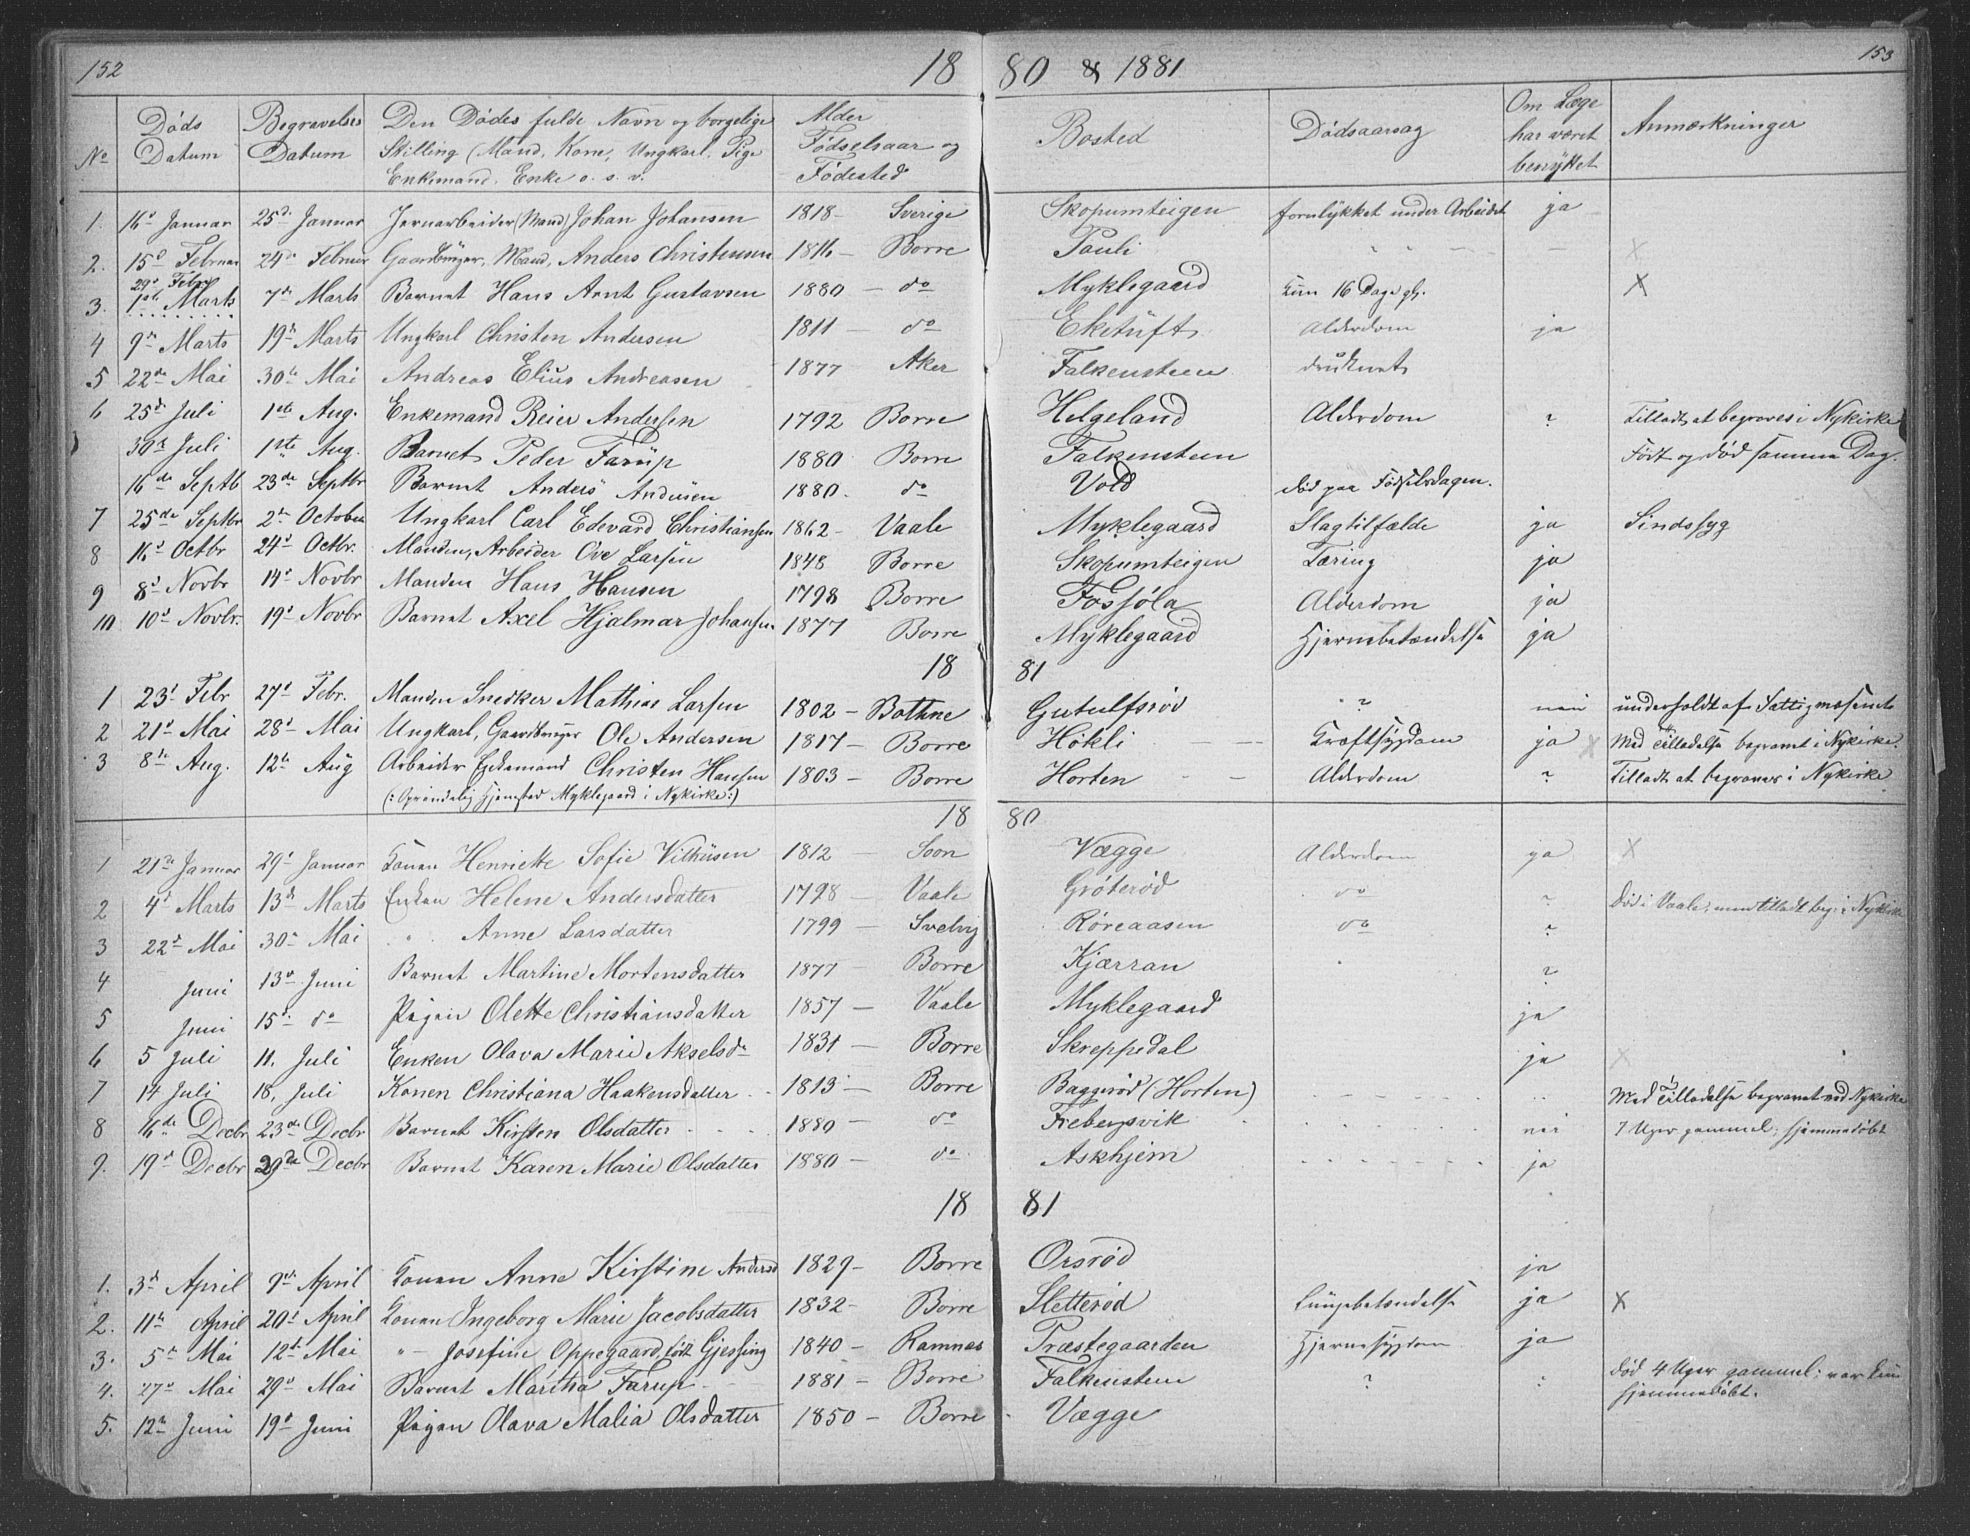 152
18 80 & 1881
153
No Døds Datum Begravelses Datum Den Dødes fulde Navn og borgelige Stilling (Mand, Kone, Ungkarl, Pige Enkemand, Enke o. s. v. Alder Fødselsaar og Fødested Bosted Dødsaarsag Om Læge har været benyttet Anmærkninger
1. 16d Januar 25d Januar Jernarbeider (Mand) Johan Johansen 1818 - Sverige Skopumteigen forulykket under Arbeidet ja
2. 15d Februar 24de Februar Gaardbruger, Mand, Anders Christensen 1816 - Borre Pauli " " - - - X
29d Febr
3. 1ste Marts 7de Marts Barnet Hans Arnt Gustavsen 1880 - do Myklegaard kun 16 Dage gl. X
4 9de Marts 19de Marts Ungkarl Christen Andersen 1811 - do Eketuft Alderdom ja
5 22de Mai 30te Mai Andreas Elius Andreasen 1877 Aker Falkensteen druknet
6 25d Juli 1ste Aug. Enkemand Reier Anderssen 1792 - Borre Helgeland Alderdom ? Tilladt at begraves i Nykirke
30te Juli 1ste Aug. Barnet Peder Farup 1880 - Borre Falkensteen Født og død samme Dag.
16de Septb 23de Septbr Barnet Anders Andersen 1880. do Vold død paa Fødselsdagen.
7 25de Septbr 2de October Ungkarl Carl Edevard Christiansen 1862 - Vaale Myklegaard Slagtilfælde ja Sindssyg
8 16d Octbr 24d Octbr. Manden, Arbeider Ove Larsen 1848 Borre Skopumteigen Tæring ja
9 8d Novbr 14d Novbr Manden Hans Hansen 1798 Borre Fossjøla Alderdom ja
10. 10d Novbr. 19d Novbr Barnet Axel Hjalmar Johansen 1877 Borre Myklegaard Hjernebetændelse ja
18 81
1 23d Febr 27d Febr. Manden Snedker Mathias Larsen 1802 - Bothne Gutulfsrød ? nei underholdt af Fattigvæsenet
2 21d Mai 28d Mai Ungkarl, Gaardbruger Ole Andersen 1817 - Borre Høkli - - - Kræftsygdom ja X Med Tilladelse begravet i Nykirke.
3 8de Aug. 12te Aug Arbeider Enkemand Christen Hansen 1803 - Borre Horten - - Alderdom ? Tilladt at begraves i Nykirke
(: Oprindelig Hjemsted Myklegaard i Nykirke :)
18 80
1 21de Januar 29d Januar Konen Henriette Sofie Vilhusen 1812 - Soon Vægge Alderdom ja X
2 4d Marts 13de Marts Enken Helene Andersdatter 1798 - Vaale Grøterød do ? Død i Vaale, men tilladt begr. i Nykirke
3 22d Mai 30te Mai " Anne Larsdatter 1799 - Svelvig Røreaasen do ?
4 Juni 13de Juni Barnet Martine Mortensdatter 1877 - Borre Kjærran ?
5 Juni 15d do Pigen Olette Christiansdatter 1857 - Vaale Myklegaard ja
6 5 Juli 11. Juli Enken Olava Marie Akselsdr 1831 - Borre Skreppedal ja X
7 14 Juli 18. Juli Konen Christiana Haakensdatter 1813 - Borre Baggerød (Horten) - - - - - - " Med Tilladelse begravet ved Nykirke
8 16de Decbr 23de Decbr Barnet Kirsten Olsdatter - - - 1880 - do Frebergsvik - - - - nei 7 Uger gammel; hjemmedøbt
9. 19d Decbr 29de Decbr Barnet Karen Marie Olsdatter 1880 - do Askhjem - - - - - - ja
18 81
1. 3d April 9de April Konen Anne Kirstine Andersd 1829 - Borre Orsrød ja
2. 11te April 20d April Konen Ingeborg Marie Jacobsdatter 1832 - Borre Sletterød Lungebetændelse ja X
3. 5d Mai 12te Mai " - Josefine Oppegaard, født Gjessing 1840 - Ramnes Præstegaarden Hjernesygdom ja
4. 27d Mai 29d Mai Barnet Martha Farup - - 1881 - Borre Falkensteen ? : død 4 Uger gammel; var kun hjemmedøbt.
5. 12te Juni 19d Juni Pigen Olava Malia Olsdatter 1850 - Borre - Vægge